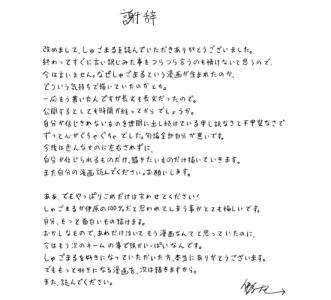 謝辞
改めまして、しゅごまるを読んでいただきありがとうございました。
終わってすぐに言い訳じみた事をつらつら言うのも情けないと思うので、
今は言いません。なぜしゅごまるという漫画が生まれたのか、
どういう気持ちで描いていたのかとか。
一応もう書いたんですが長文も長文だったので。
公開するとしても時間が経ってからでしょうか。
自分が信じきれないものを世間に出し続けている申し訳なさと不甲斐なさで
ずっと心がぐちゃぐちゃでした。勿論全部自分が悪いです。
今後は色んなものに左右されずに、
自分が信じられるものだけ、描きたいものだけ描いていきます。
また自分の漫画読んでください。お願いします。
ああ、でもやっぱりこれだけは言わせてください!
しゅごまるが伊原の100%だと思われてしまう事がとても悔しいです。
自分、もっと面白いもの描けます。
おかしなもので、あれだけ泣いてもう漫画なんてと思っていたのに、
今はもう次のネームの事で頭がいっぱいなんです。
しゅごまるを好きになっていただいた方、本当にありがとうございます。
でももっと好きになる漫画を、次は描きますから。
また、読んでください。